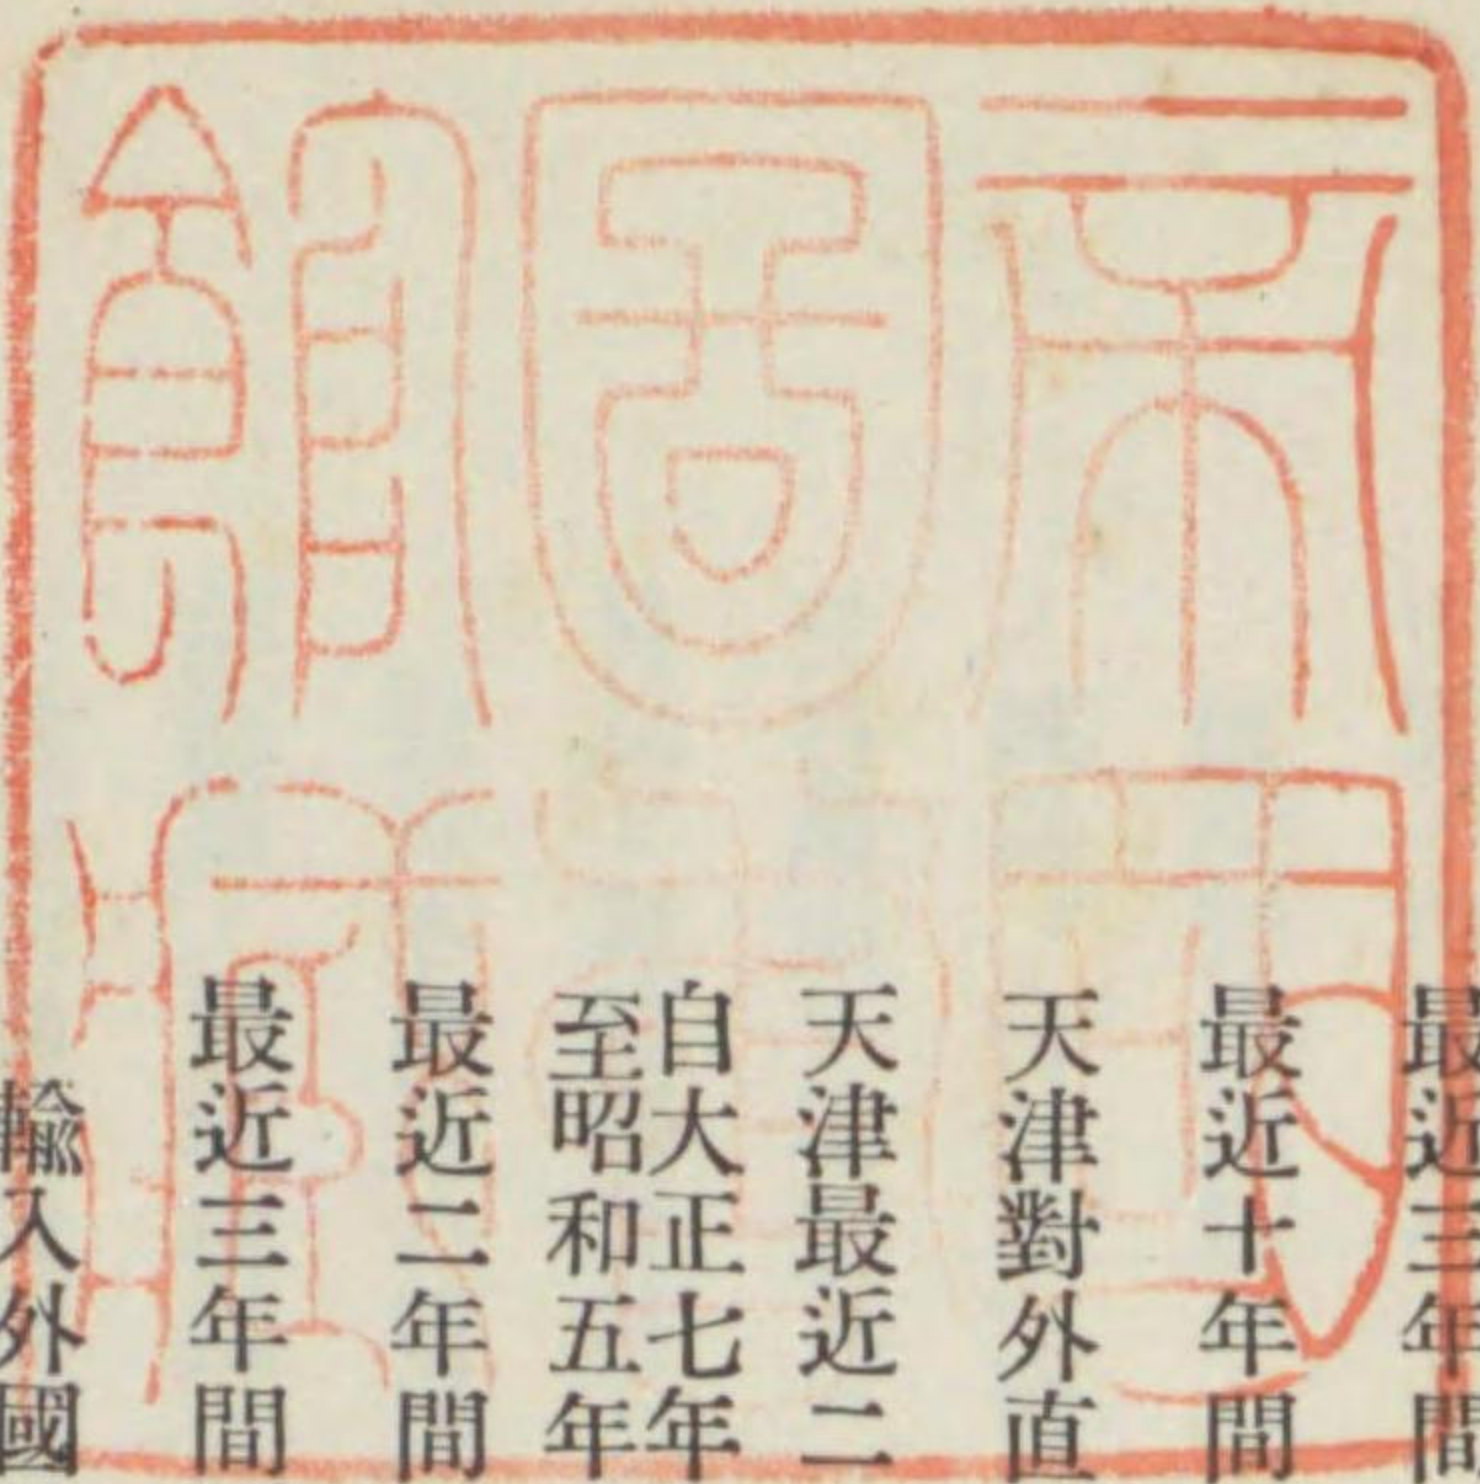 帝國
圖書
館藏
最近三年間
最近十年間
天津對外直
天津最近二
自大正七年
至昭和五年
最近二年間
最近三年間
輸入外國